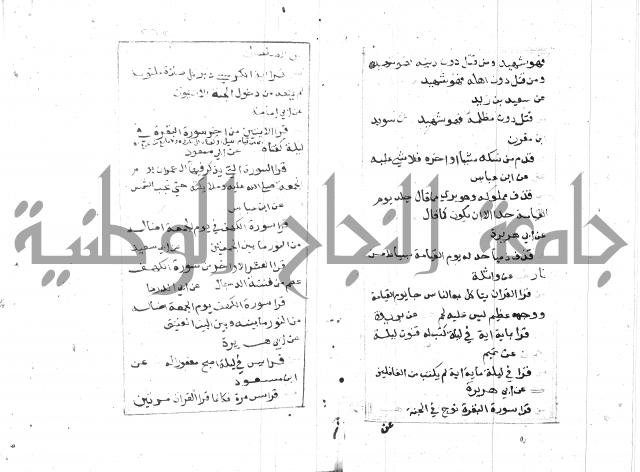 فهو شهيد ومن قتل دون دينه فهو شهيد
ومن قتل دون اهله فهو شهيد
عن سعيد بن زيد
قتل دون مظلمة فهو شهيد عن سويد
بن مقرن
قدم من نسكه شيئا او اخره فلا شي عليه
عن ابن عباس
قذف مملوكه وهو بري مما قال جلد يوم
القيامة حدا الا ان يكون كما قال
عن ابي هريرة
قذف ذميا حد له يوم القيامة بسياط من
نار عن واثلة
قرا القران يتاكل به الناس جا يوم القيامة
ووجهه عظم ليس عليه لحم عن بريدة
قرا بماية اية في ليلة كتب له قنوت ليلة
عن تميم
قرا في ليلة ماية اية لم يكتب من الغافلين
عن ابي هريرة
قرا سورة البقرة توج في الجنة
عن
قرا اية الكرسي دبر كل صلاة مكتوبة
لم يمنعه من دخول الجنة الا الموت
عن ابي امامة
قرا الايتين من اخر سورة البقرة في
ليلة كفتاه عن ابن مسعود
قرا السورة التي يذكر فيها ال عمران يوم
الجمعة صلى الله عليه وملايكته حتى تجب الشمس
عن ابن عباس
قرا سورة الكهف في يوم الجمعة اضا له
من النور ما بين الجمعتين عن ابي سعيد
قرا العشر الاواخر من سورة الكهف
عصم من فتنة الدجال عن ابي الدردا
قرا سورة الكهف يوم الجمعة اضا له
من النور ما بينه وبين البيت العتيق
عن ابي هريرة
قرا يس في ليلة اصبح مغفورا له عن
ابن مسعود
قرا يس مرة فكانما قرا القران مرتين
جامعة النجاح الوطنية